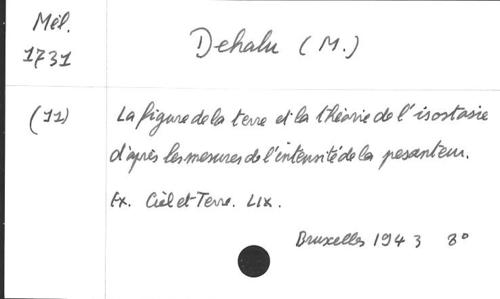 Mél.
1731
Dehalu (M.)
(11)
La figure de la terre et la théorie de l'isostasie
d'après les mesures de l'intensité de la pesanteur.
Ex. Ciel et Terre. LIX.
Bruxelles 1943 8°